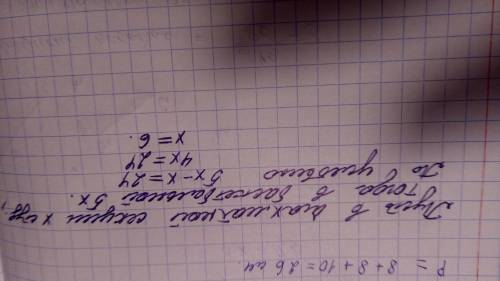 P = 8+8+10=26 см.
Пусть в шахматной секции x чел,
тогда в баскетбольной 5x.
По условию 5x-x=24
4x=24
x=6.